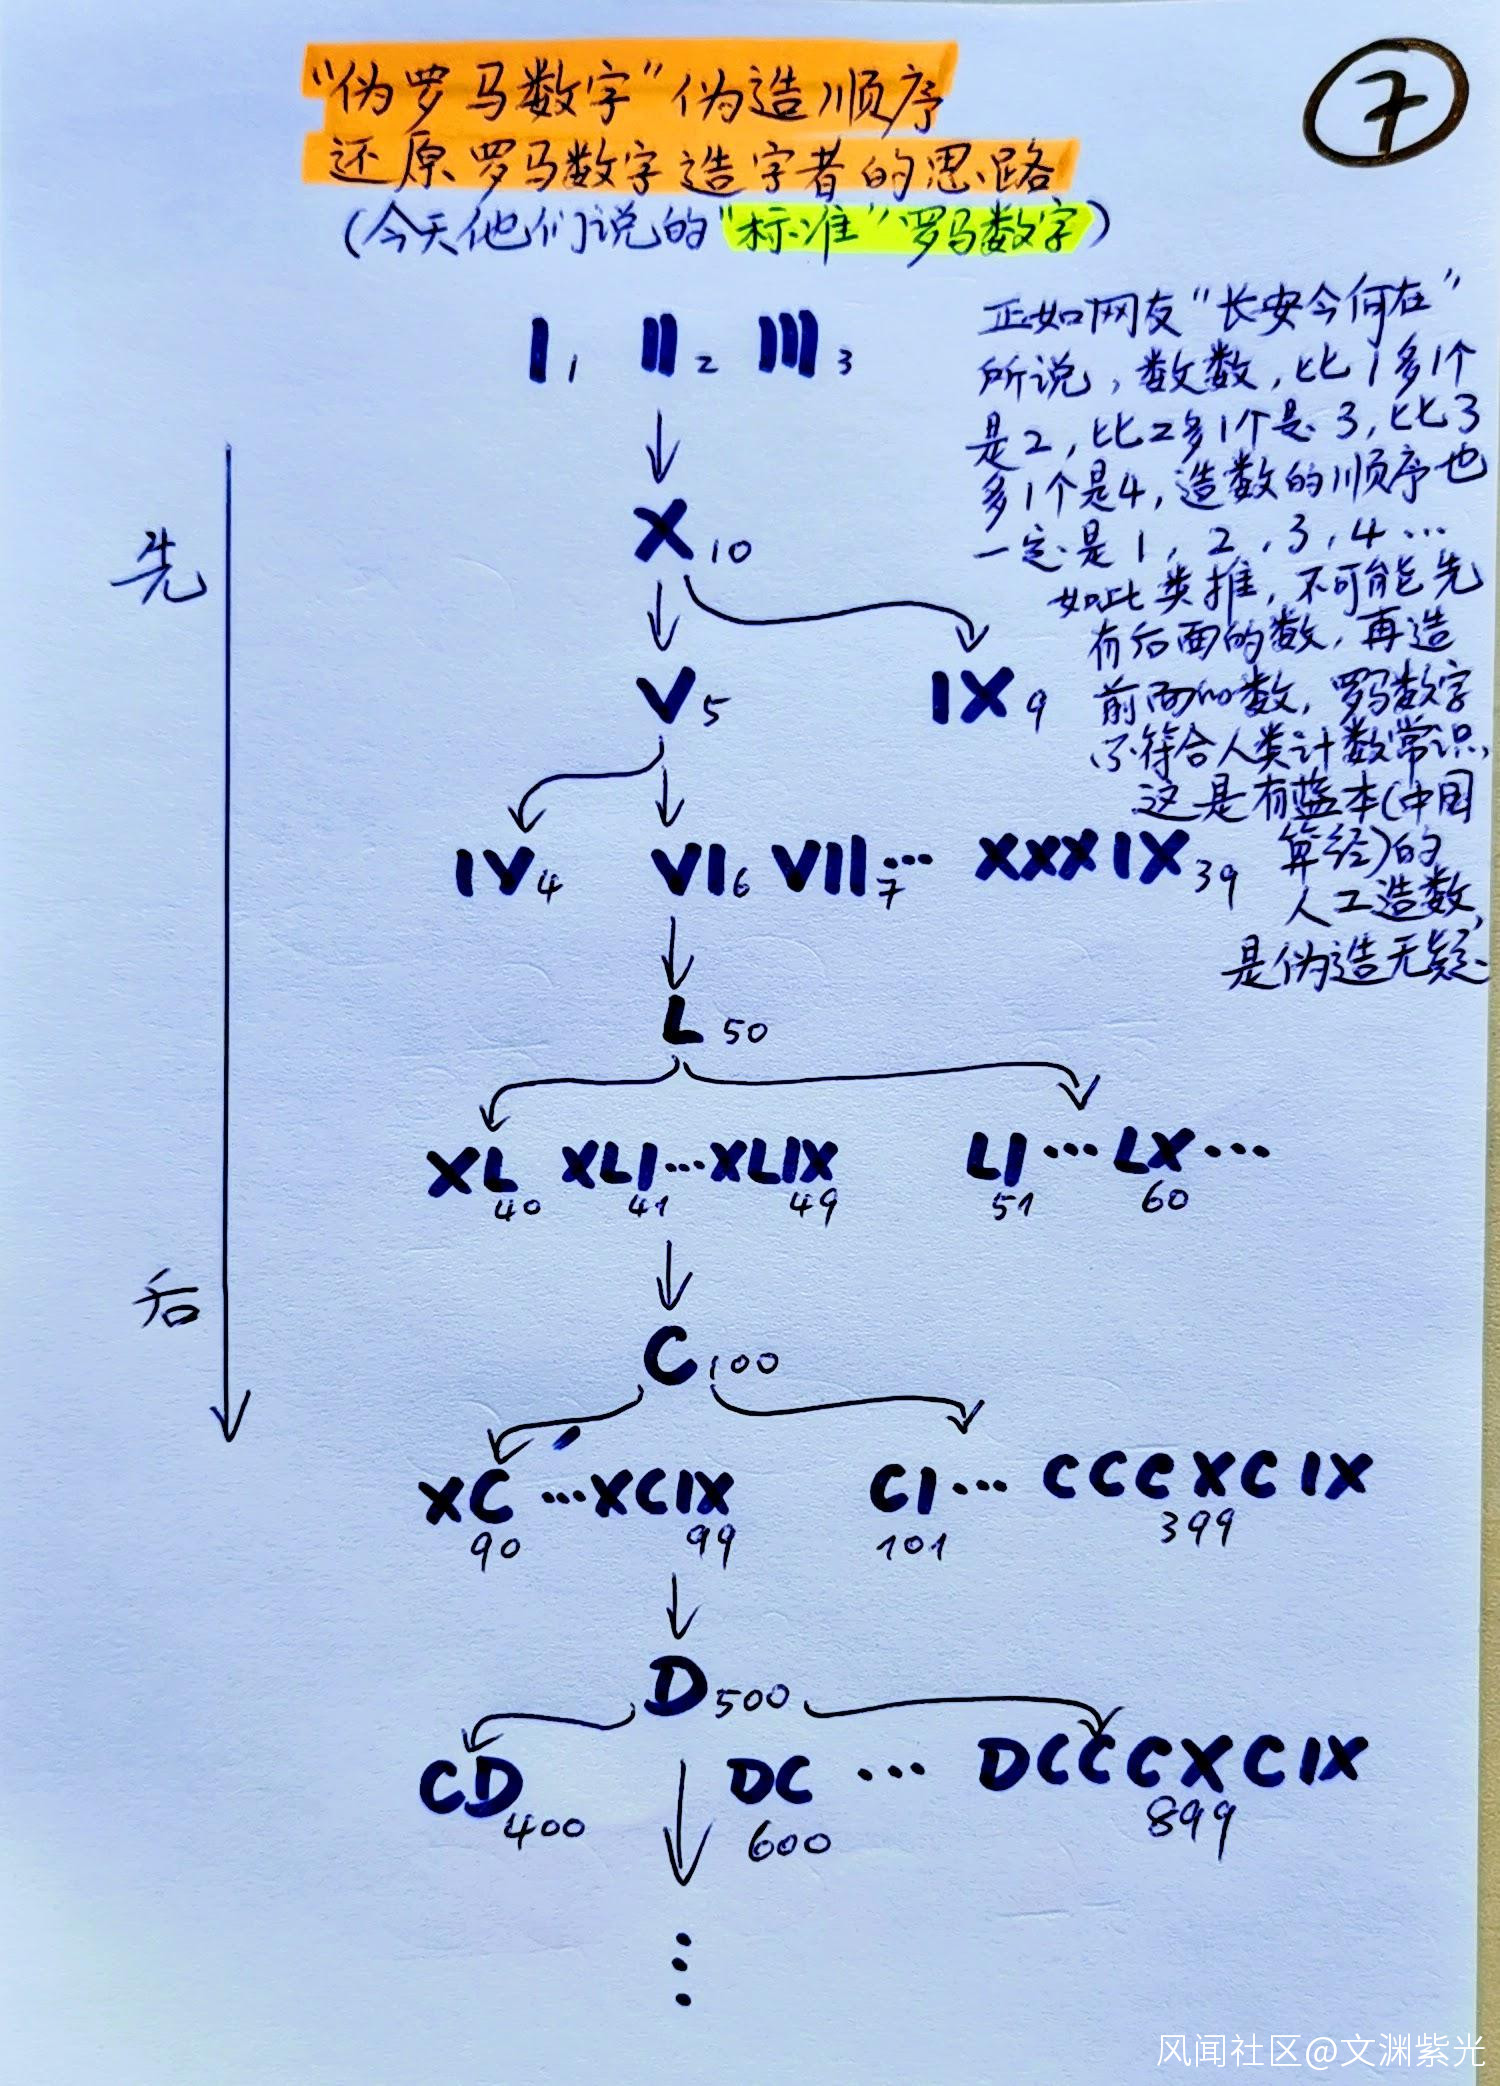 “伪罗马数字”伪造顺序
7
还原罗马数字造字者的思路
(今天他们说的“标准”罗马数字)
正如网友“长安今何在”
所说，数数，比1多1个
是2，比2多1个是3，比3
多1个是4，造数的顺序也
一定是1，2，3，4…
如此类推，不可能先
有后面的数，再造
前面的数，罗马数字
不符合人类计数常识，
这是有蓝本(中国
算经)的
人工造数，
是伪造无疑.
I 1 II 2 III 3
先
X 10
V 5 IX 9
IV 4 VI 6 VII 7 … XXXIX 39
L 50
XL 40 XLI 41 … XLIX 49 LI 51 … LX 60 …
后
C 100
XC 90 … XCIX 99 CI 101 … CCCXCIX 399
D 500
CD 400 DC 600 … DCCCXCIX 899
⋮
风闻社区@文渊紫光